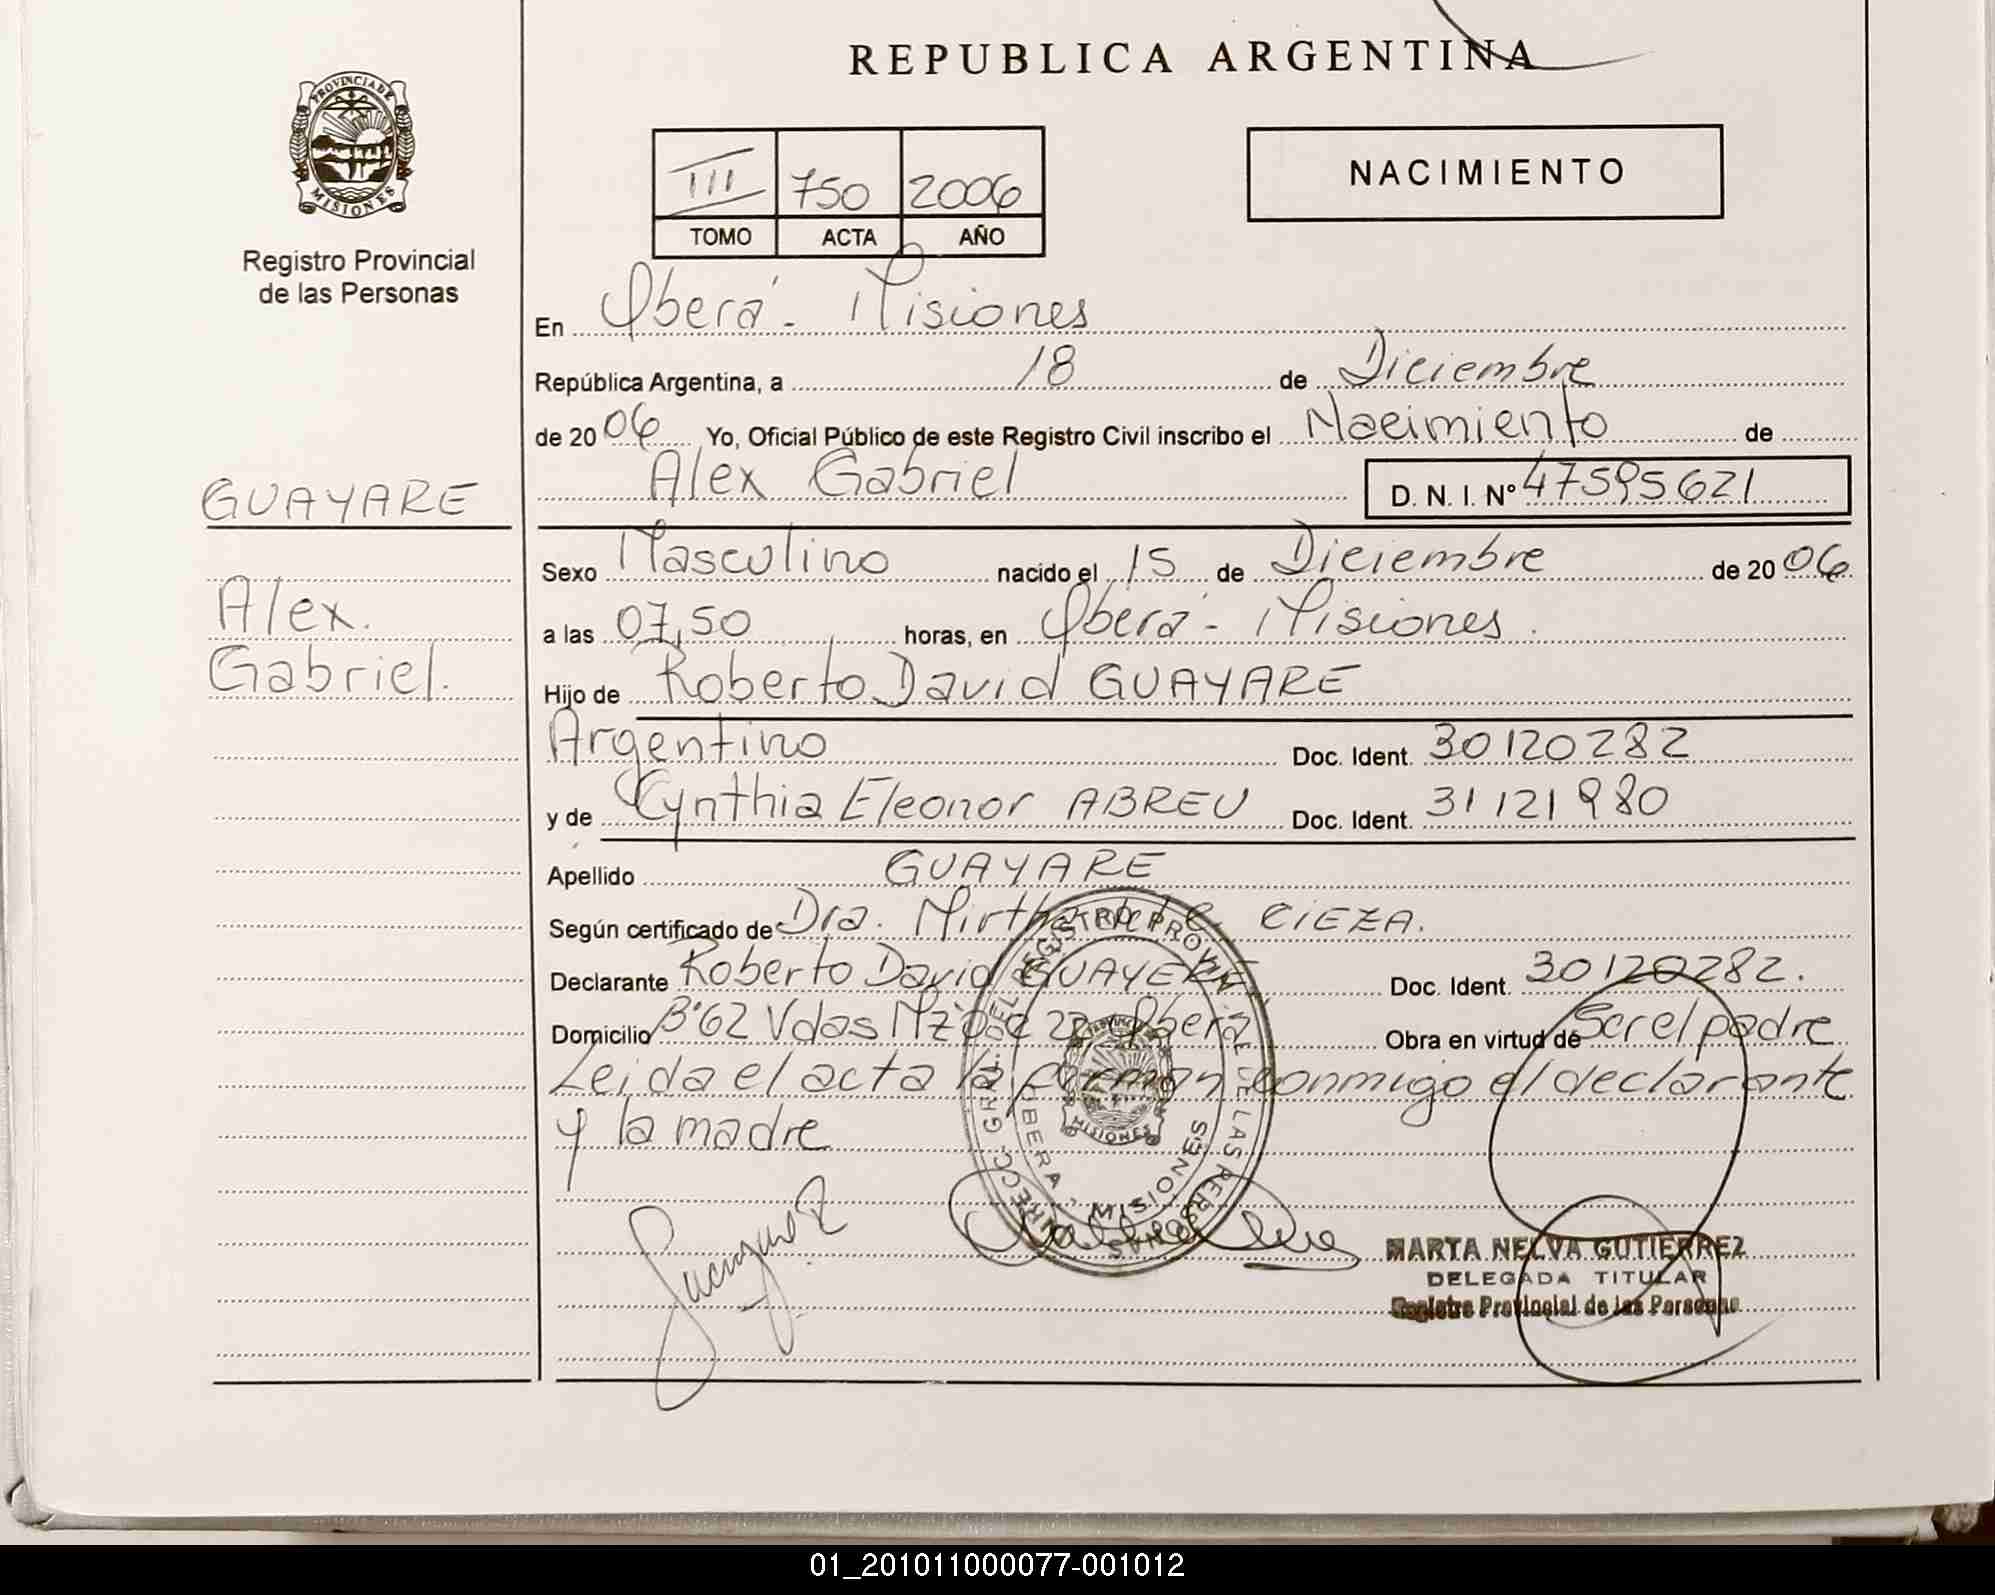 REPUBLICA ARGENTINA
PROVINCIA DE
MISIONES
Registro Provincial
de las Personas
III 750 2006
TOMO ACTA AÑO
NACIMIENTO
En Oberá - Misiones
República Argentina, a 18 de Diciembre
de 2006 Yo, Oficial Público de este Registro Civil inscribo el Nacimiento de
Alex Gabriel D. N. I. Nº 47595621
GUAYARE
Alex.
Gabriel.
Sexo Masculino nacido el 15 de Diciembre de 2006
a las 07,50 horas, en Oberá - Misiones.
Hijo de Roberto David GUAYARE
Argentino Doc. Ident. 30120282
y de Cynthia Eleonor ABREU Doc. Ident. 31121980
Apellido GUAYARE
Según certificado de Dra. Mirtha de CIEZA.
Declarante Roberto David GUAYERE Doc. Ident. 30120282.
Domicilio B°62 Vdas Mz Oberá Obra en virtud de Ser el padre
Leida el acta la firman conmigo el declarante
y la madre
DIRECC. GRAL. DEL REGISTRO PROVIN. DE LAS PERSONAS
OBERA - MISIONES
MISIONES
MARTA NELVA GUTIERREZ
DELEGADA TITULAR
Registro Provincial de las Personas
01_201011000077-001012